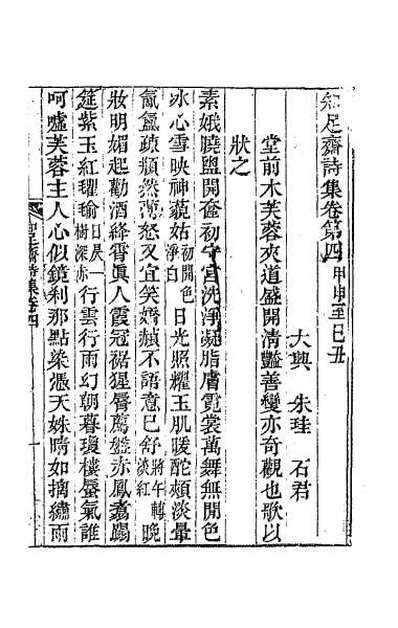 知足齋詩集卷第四甲申至己丑
大興　朱珪　石君
堂前木芙蓉夾道盛開清豔善變亦奇觀也歌以
狀之
素娥曉盥開奩初守宮洗淨凝脂膚霓裳萬舞無開色
冰心雪映神藐姑初開色淨白日光照耀玉肌暖酡頰淡暈
氤氳疎頹然薄怒又宜笑嬌頳不語意已舒將午轉淡紅晚
妝明媚起勸酒絳霄真人霞冠裾猩脣薦盤赤鳳翥蹋
筵紫玉紅瓘瑜日昃一樹深赤行雲行雨幻朝暮瓊樓蜃氣誰
呵噓芙蓉主人心似鏡剎那點染憑天姝晴如摛繡雨
知足齋詩集卷四